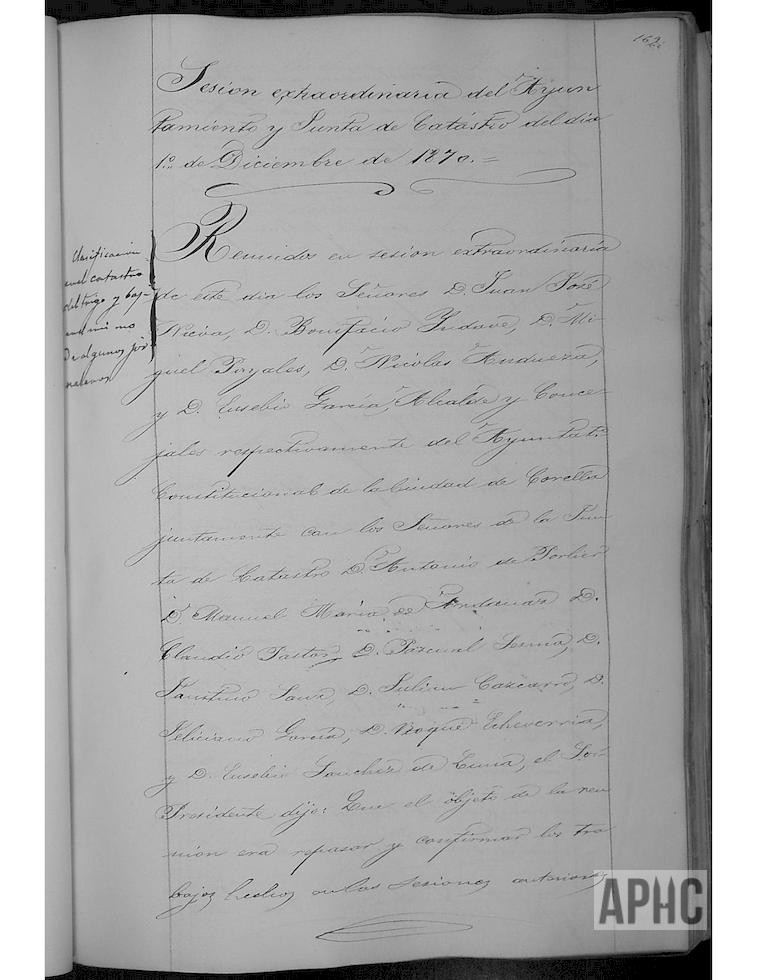 169
Sesion extraordinaria del Ayun
tamiento y Junta de Catástro del dia
1.º de Diciembre de 1870. =
Clasificacion
en el catastro
del trigo y
no
de algunos jor
naleros
Reunidos en sesion extraordinaria
de este dia los Señores D. Juan José
D. Bonifacio D. Mi-
guel D. Nicolas Andueza,
y D. Eusebio García, Alcalde y Conce-
jales respectivamente del Ayuntat.º
Constitucional de la Ciudad de Corella
juntamente con los Señores de la Jun
ta de Catastro D. Antonio de Porlier
D. Manuel María de D.
Claudio Pastor, D. Pascual Sesma, D.
Faustino Sanz, D. Julian D.
Feliciano García, D. Roque Echeverria,
y D. Eusebio Sanchez de Luna, el Sor
Presidente dijo: Que el objeto de la reu
nion era repasar y confirmar los tra
bajos hechos en las sesiones anteriores
APHC